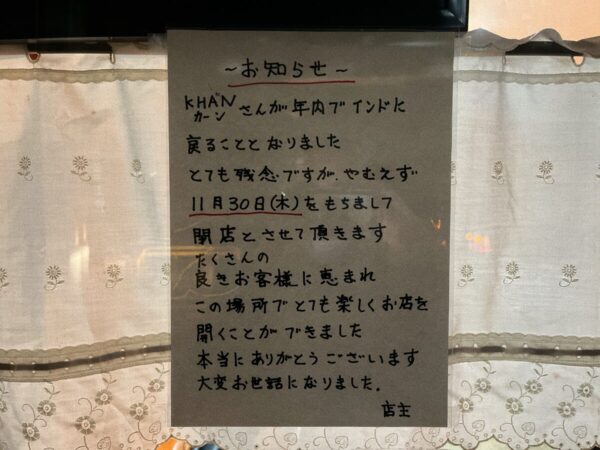 ～お知らせ～
KHANさんが年内でインドに
カーン
戻ることとなりました
とても残念ですが、やむえず
11月30日(木)をもちまして
閉店とさせて頂きます
たくさんの
良きお客様に恵まれ
この場所でとても楽しくお店を
開くことができました
本当にありがとうございます
大変お世話になりました。
店主